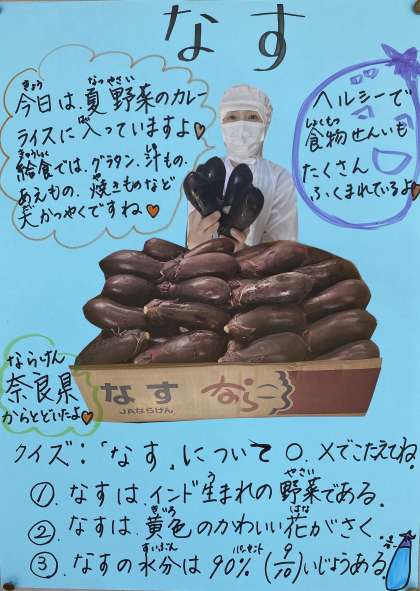 なす
今日は、夏野菜のカレー
ライスに入っていますよ
給食では、グラタン、汁もの、
あえもの、焼きものなど
大かつやくですね
ヘルシーで
食物せんいも
たくさん
ふくまれているよ
ならけん
奈良県
からとどいたよ
なす なら
JAならけん
クイズ:「なす」について○、×でこたえてね
①.なすは、インド生まれの野菜である.
②.なすは、黄色のかわいい花がさく.
③.なすの水分は90% (9/10)いじょうある